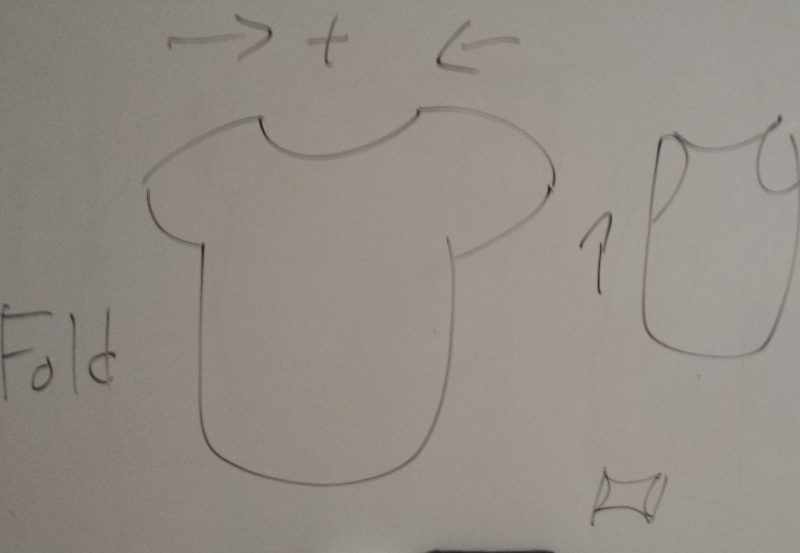 +
Fold